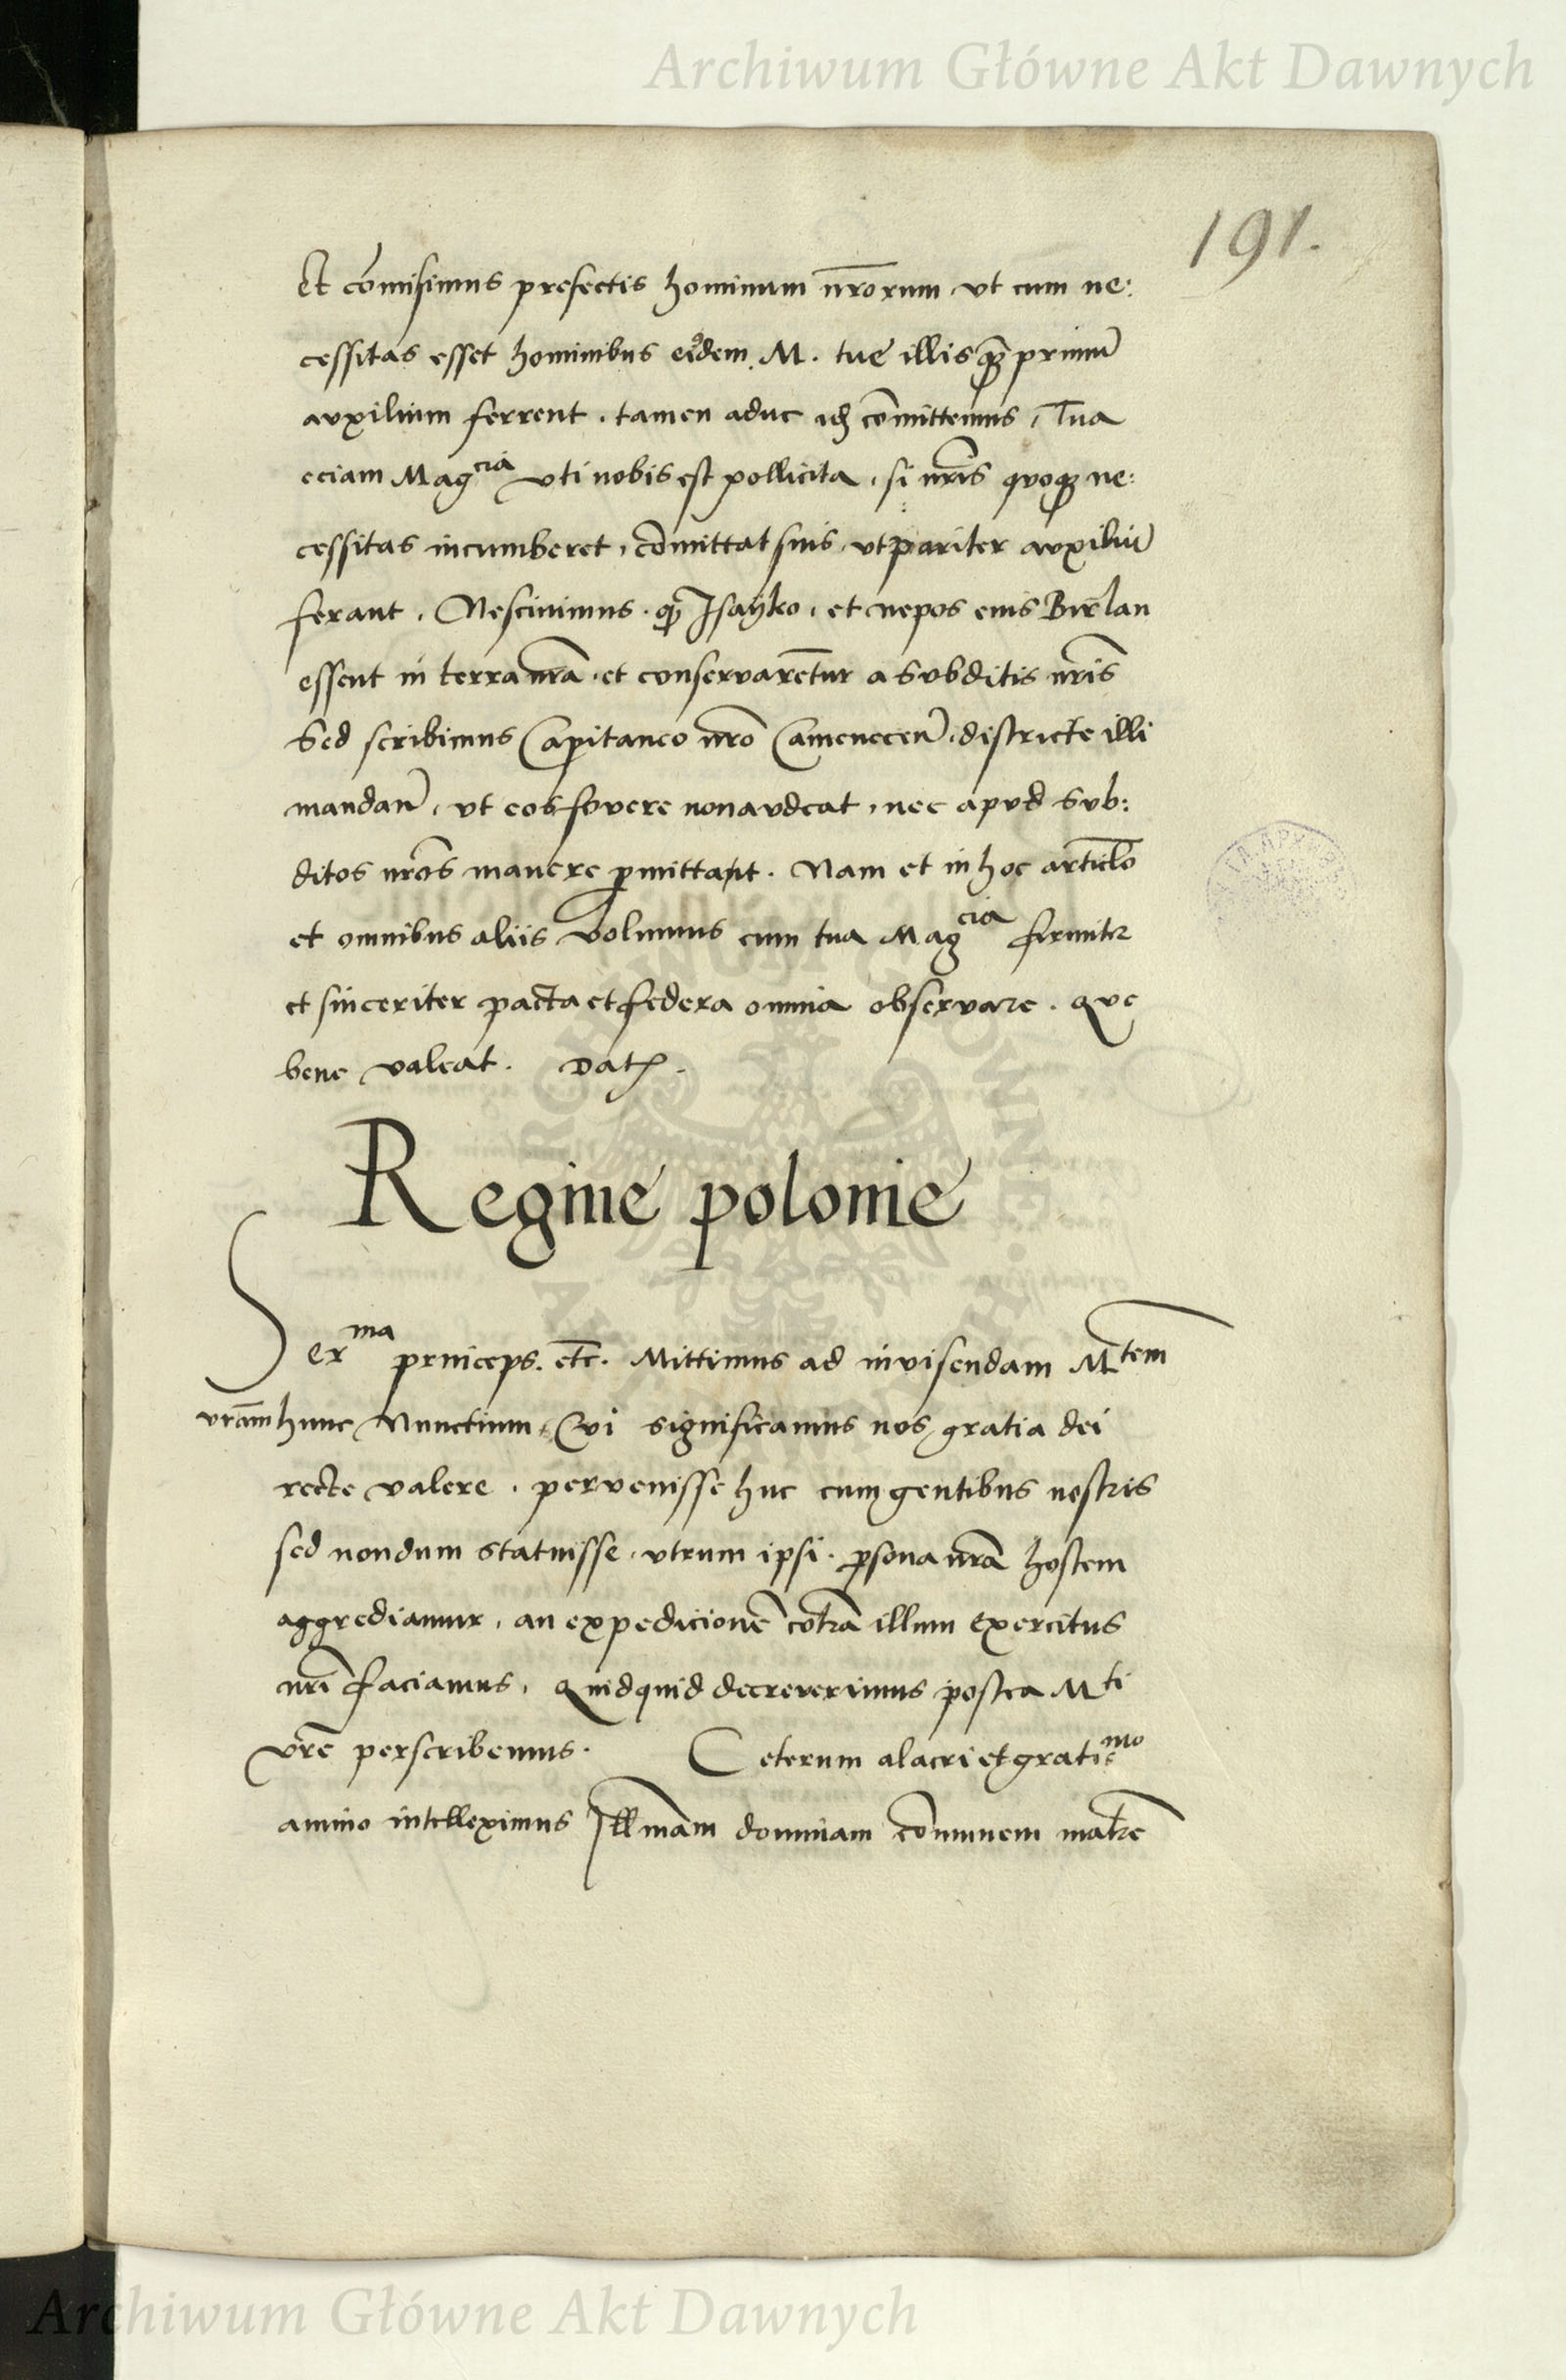 Archiwum Główne Akt Dawnych
191.
Et cōmisimus prefectis hominum nr̄orum ut cum ne:
cessitas esset hominibus eiusdem M. tue illis qᷓ primū
auxilium ferrent. tamen aduc id cōmittemus, Tua
eciam Mag^cia uti nobis est pollicita, si nr̄is quoqꝫ ne:
cessitas incumberet, cōmittat suis, ut pariter auxiliū
ferant. Nescivimus. qꝫ Isayko, et nepos eius Birlan
essent in terra nr̄a, et conservarētur a subditis nr̄is
Sed scribimus Capitaneo nr̄o Camenecen̄, districte illi
mandan̄, ut eos fovere non audeat, nec apud sub:
ditos nr̄os manere ꝑmittant. Nam et in hoc articl̄o
et omnibus aliis volumus cum tua Mag^cia firmiter
et sinceriter pacta et federa omnia observare. Que
bene valeat. Datꝭ.
Regine polonie
Ser^ma princeps. etc̄. Mittimus ad invisendam M^tem
vr̄am hunc Nunctium, Cui significamus nos gratia dei
recte valere, pervenisse huc cum gentibus nostris
sed nondum statuisse, utrum ipsi. ꝑsona nr̄a hostem
aggrediamur, an expedicionē cōtra illum exercitus
nr̄i faciamus. Quidquid decreverimus postea M^ti
vr̄e perscribemus. Ceterum alacri et gratis^mo
animo intelleximus Illmām dominam cōmunem matrē
Archiwum Główne Akt Dawnych